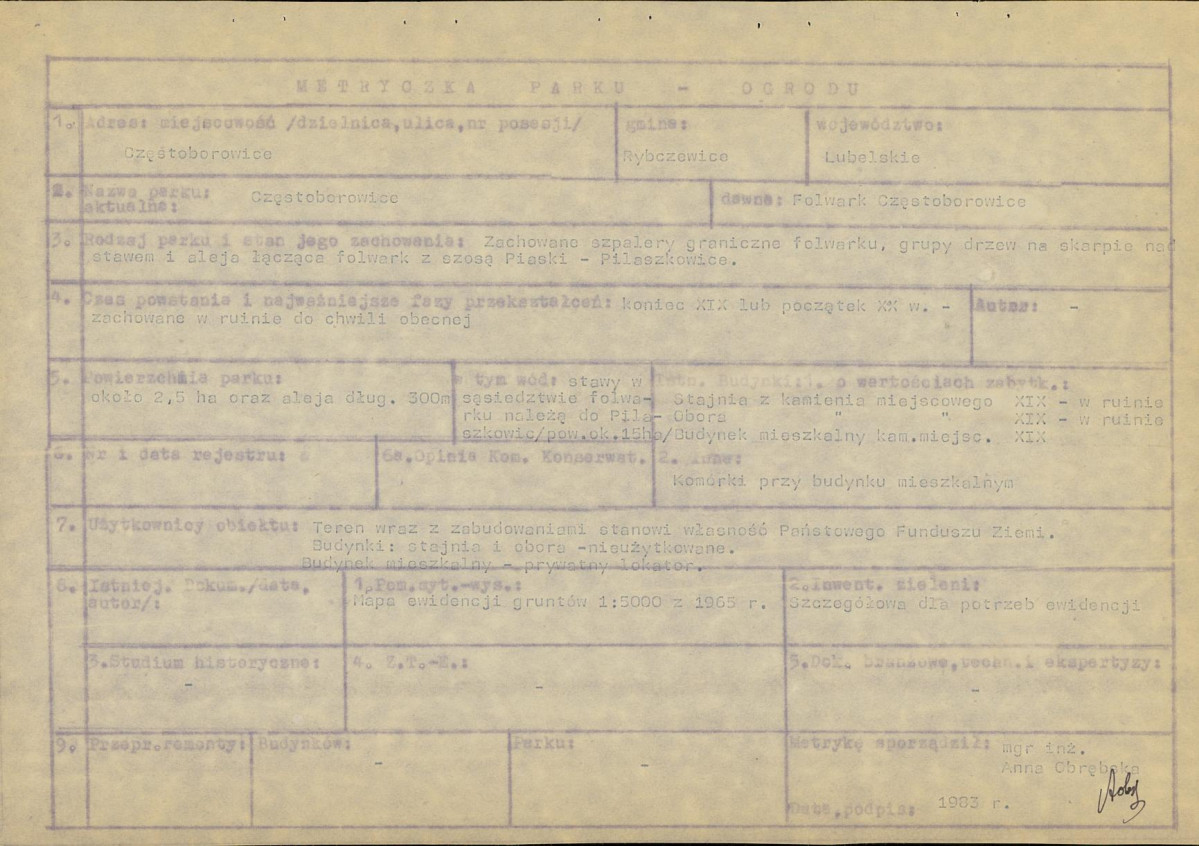 METRYCZKA PARKU - OGRODU
1. Adres: miejscowość /dzielnica,ulica,nr posesji/ gmina: województwo:
Częstoborowice Rybczewice Lubelskie
2. Nazwa parku: Częstoborowice dawna: Folwark Częstoborowice
aktualna:
3. Rodzaj parku i stan jego zachowania: Zachowane szpalery graniczne folwarku, grupy drzew na skarpie nad
stawem i aleja łącząca folwark z szosą Piaski - Pilaszkowice.
4. Czas powstania i najważniejsze fazy przekształceń: koniec XIX lub początek XX w. - Autor: -
zachowane w ruinie do chwili obecnej
5. Powierzchnia parku: w tym wód: stawy w Istn. Budynki:1. o wartościach zabytk.:
około 2,5 ha oraz aleja dług. 300m sąsiedztwie folwa- Stajnia z kamienia miejscowego XIX - w ruinie
rku należą do Pila- Obora " " XIX - w ruinie
szkowic/pow.ok.15ha/ Budynek mieszkalny kam.miejsc. XIX
6. Nr i data rejestru: 6a.Opinia Kom. Konserwat. 2. Inne:
Komórki przy budynku mieszkalnym
7. Użytkownicy obiektu: Teren wraz z zabudowaniami stanowi własność Państwowego Funduszu Ziemi.
Budynki: stajnia i obora -nieużytkowane.
Budynek mieszkalny - prywatny lokator.
8. Istniej. Dokum./data, 1.Pom.syt.-wys.: 2.Inwent. zieleni:
autor/: Mapa ewidencji gruntów 1:5000 z 1965 r. Szczegółowa dla potrzeb ewidencji
3.Studium historyczne: 4. Z.T.-E.: 5.Dok. branżowe,techn.i ekspertyzy:
- - -
9. Przepr.remonty: Budynków: Parku: Metrykę sporządził: mgr inż.
- - Anna Obrębska
Data,podpis: 1983 r.